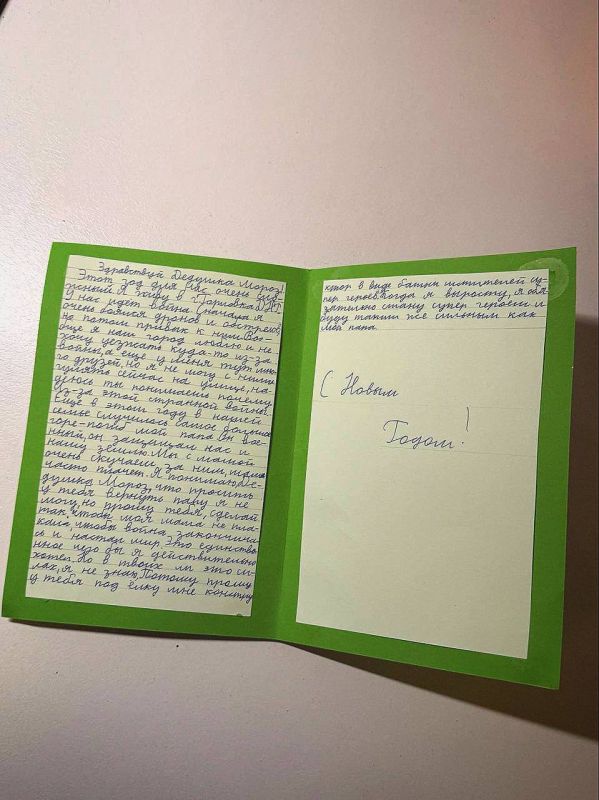 Здравствуй Дедушка Мороз!
Этот год для нас очень сло-
жный. Я живу в г. Горловка ДНР
У нас идет война. Сначала я
очень боялся дронов и обстрелов,
но потом привык к ним. Во-
обще я наш город люблю и не
хочу уезжать куда-то из-за
войны, а еще у меня тут мно-
го друзей, но я не могу с ними
гулять сейчас на улице, на-
деюсь ты понимаешь почему
Из-за этой странной войны.
Еще в этом году в нашей
семье случилось самое большое
горе-погиб мой папа. Он Вое-
нный, он защищал нас и
нашу землю. Мы с мамой
очень скучаем, за ним, мама
часто плачет. Я понимаю, Де-
душка Мороз, что просить
у тебя вернуть папу я не
могу, но прошу тебя, сделай
так, чтобы моя мама не пла-
кала, чтобы война закончила-
сь и настал мир. Это единстве
нное чтобы я действительно
хотел. Но в твоих ли это си-
лах, я не знаю. Потому прошу
у тебя под ёлку мне констру
ктор в виде башни мстителей су-
пер героев. Когда я вырасту, я обя
зательно стану супер героем и
буду таким же сильным как
мой папа.
С Новым
Годом!